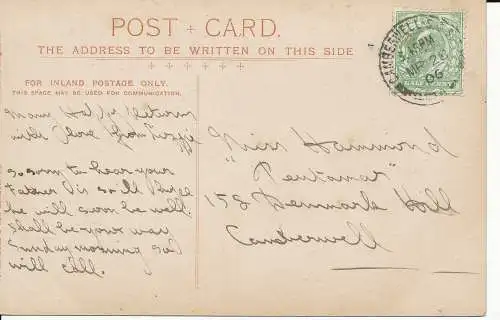 POST CARD.
THE ADDRESS TO BE WRITTEN ON THIS SIDE
FOR INLAND POSTAGE ONLY.
THIS SPACE MAY BE USED FOR COMMUNICATION.
Many Happy Returns
with love from
so sorry to hear your
Father is so ill
he will soon be well.
shall be your way
Sunday morning so
will call.
Miss Hammond
"Pentamar"
158 Denmark Hill
Camberwell
CAMBERWELL
06
HALFPENNY